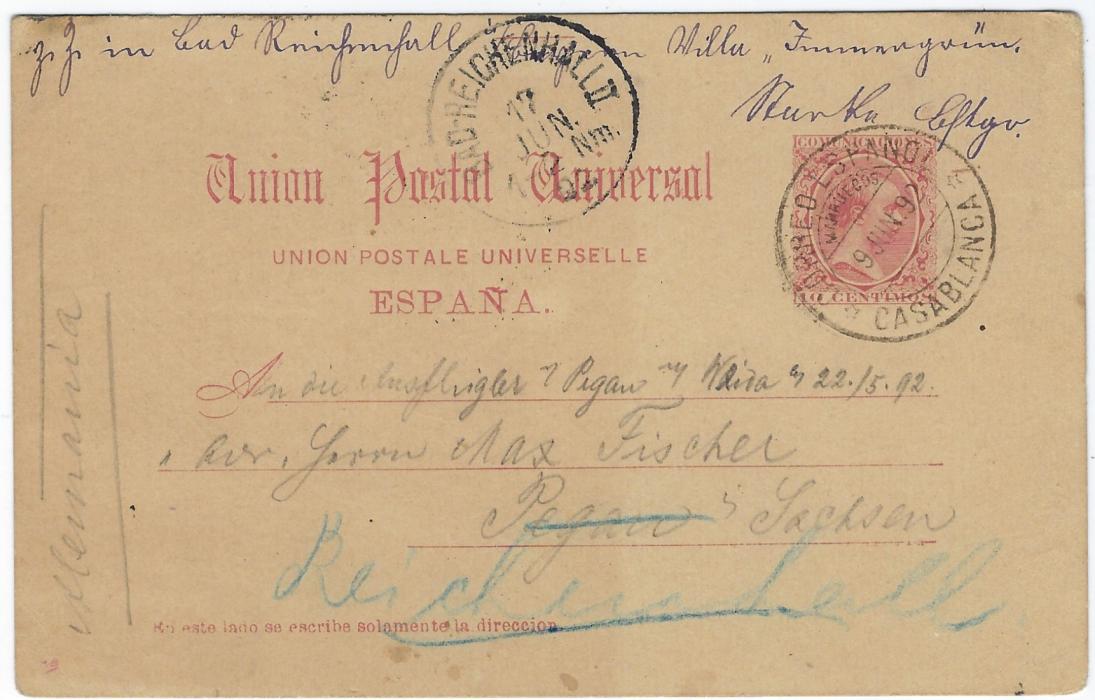 z. Z. in Bad Reichenhall Villa „Immergrün.
BAD-REICHENHALL II
17
JUN.
Nm.
92
COMUNICACIONES
Union Postal Universal
CORREO ESPAÑOL
MARRUECOS
9 JUN. 92
CASABLANCA
10 CENTIMOS
UNION POSTALE UNIVERSELLE
ESPAÑA.
An die Ausflügler Pegau 22./5. 92.
Adr. Herrn Max Fischer
Pegau Sachsen
Reichenhall
Alemania
En este lado se escribe solamente la direccion